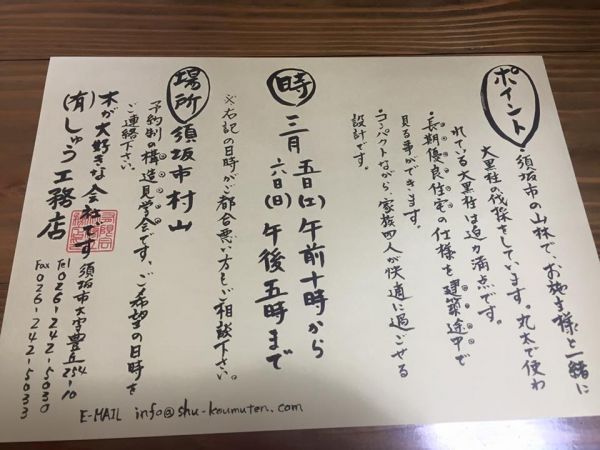 ポイント
・須坂市の山林で、お施主様と一緒に
大黒柱の伐採をしています。丸太で使わ
れている大黒柱は迫力満点です。
・長期優良住宅の仕様を建築途中で
見る事ができます。
・コンパクトながら家族四人が快適に過ごせる
設計です。
時
三月五日(土)午前十時から
六日(日)午後五時まで
※右記の日時がご都合悪い方もご相談下さい。
場所
須坂市村山
予約制の構造見学会です、ご希望の日時を
ご連絡下さい。
木が大好きな会社です
(有)しゅう工務店
須坂市大字豊丘254-10
Tel 026-242-5030
Fax 026-242-5033
E-MAIL info@shu-koumuten.com